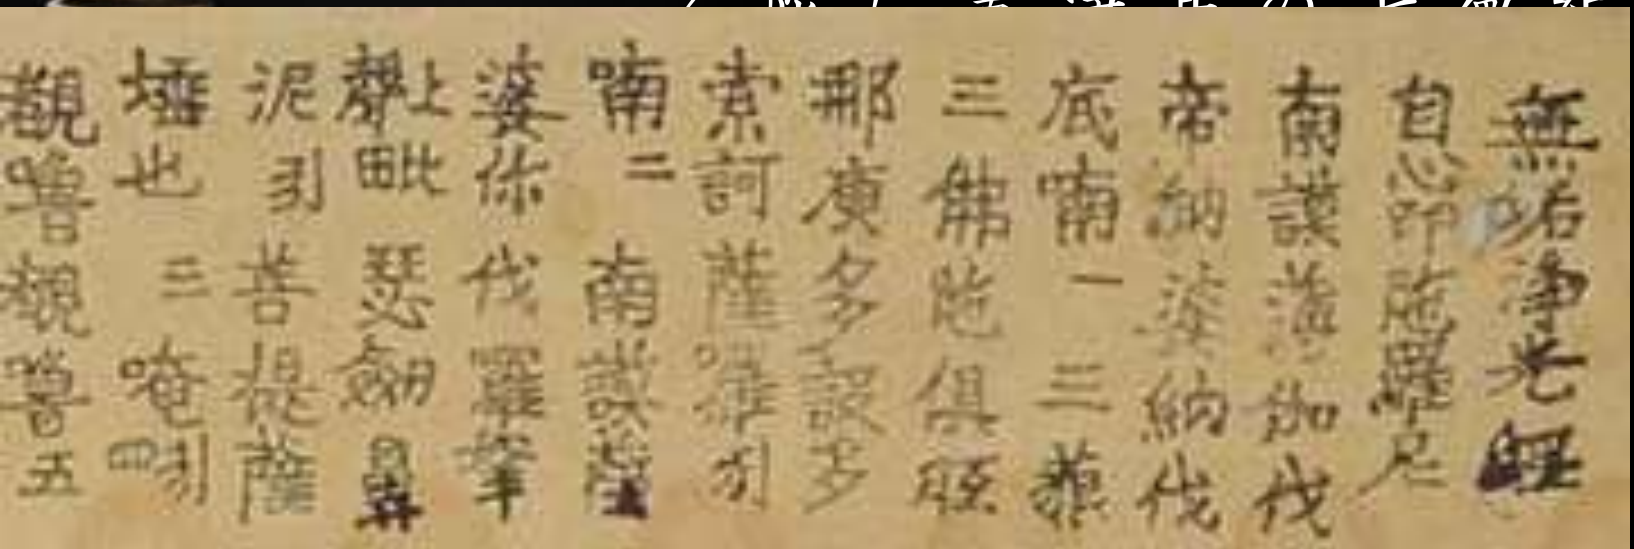 無垢淨光經
自心印陀羅尼
南謨薄伽伐
帝納婆納伐
底喃一三藐
三佛陀俱胝
那庾多設多
索訶薩囉引
喃二南謨薩
婆你伐羅拏
上聲毗瑟劔鼻
泥引菩提薩
埵也三唵引四
覩嚕覩嚕五